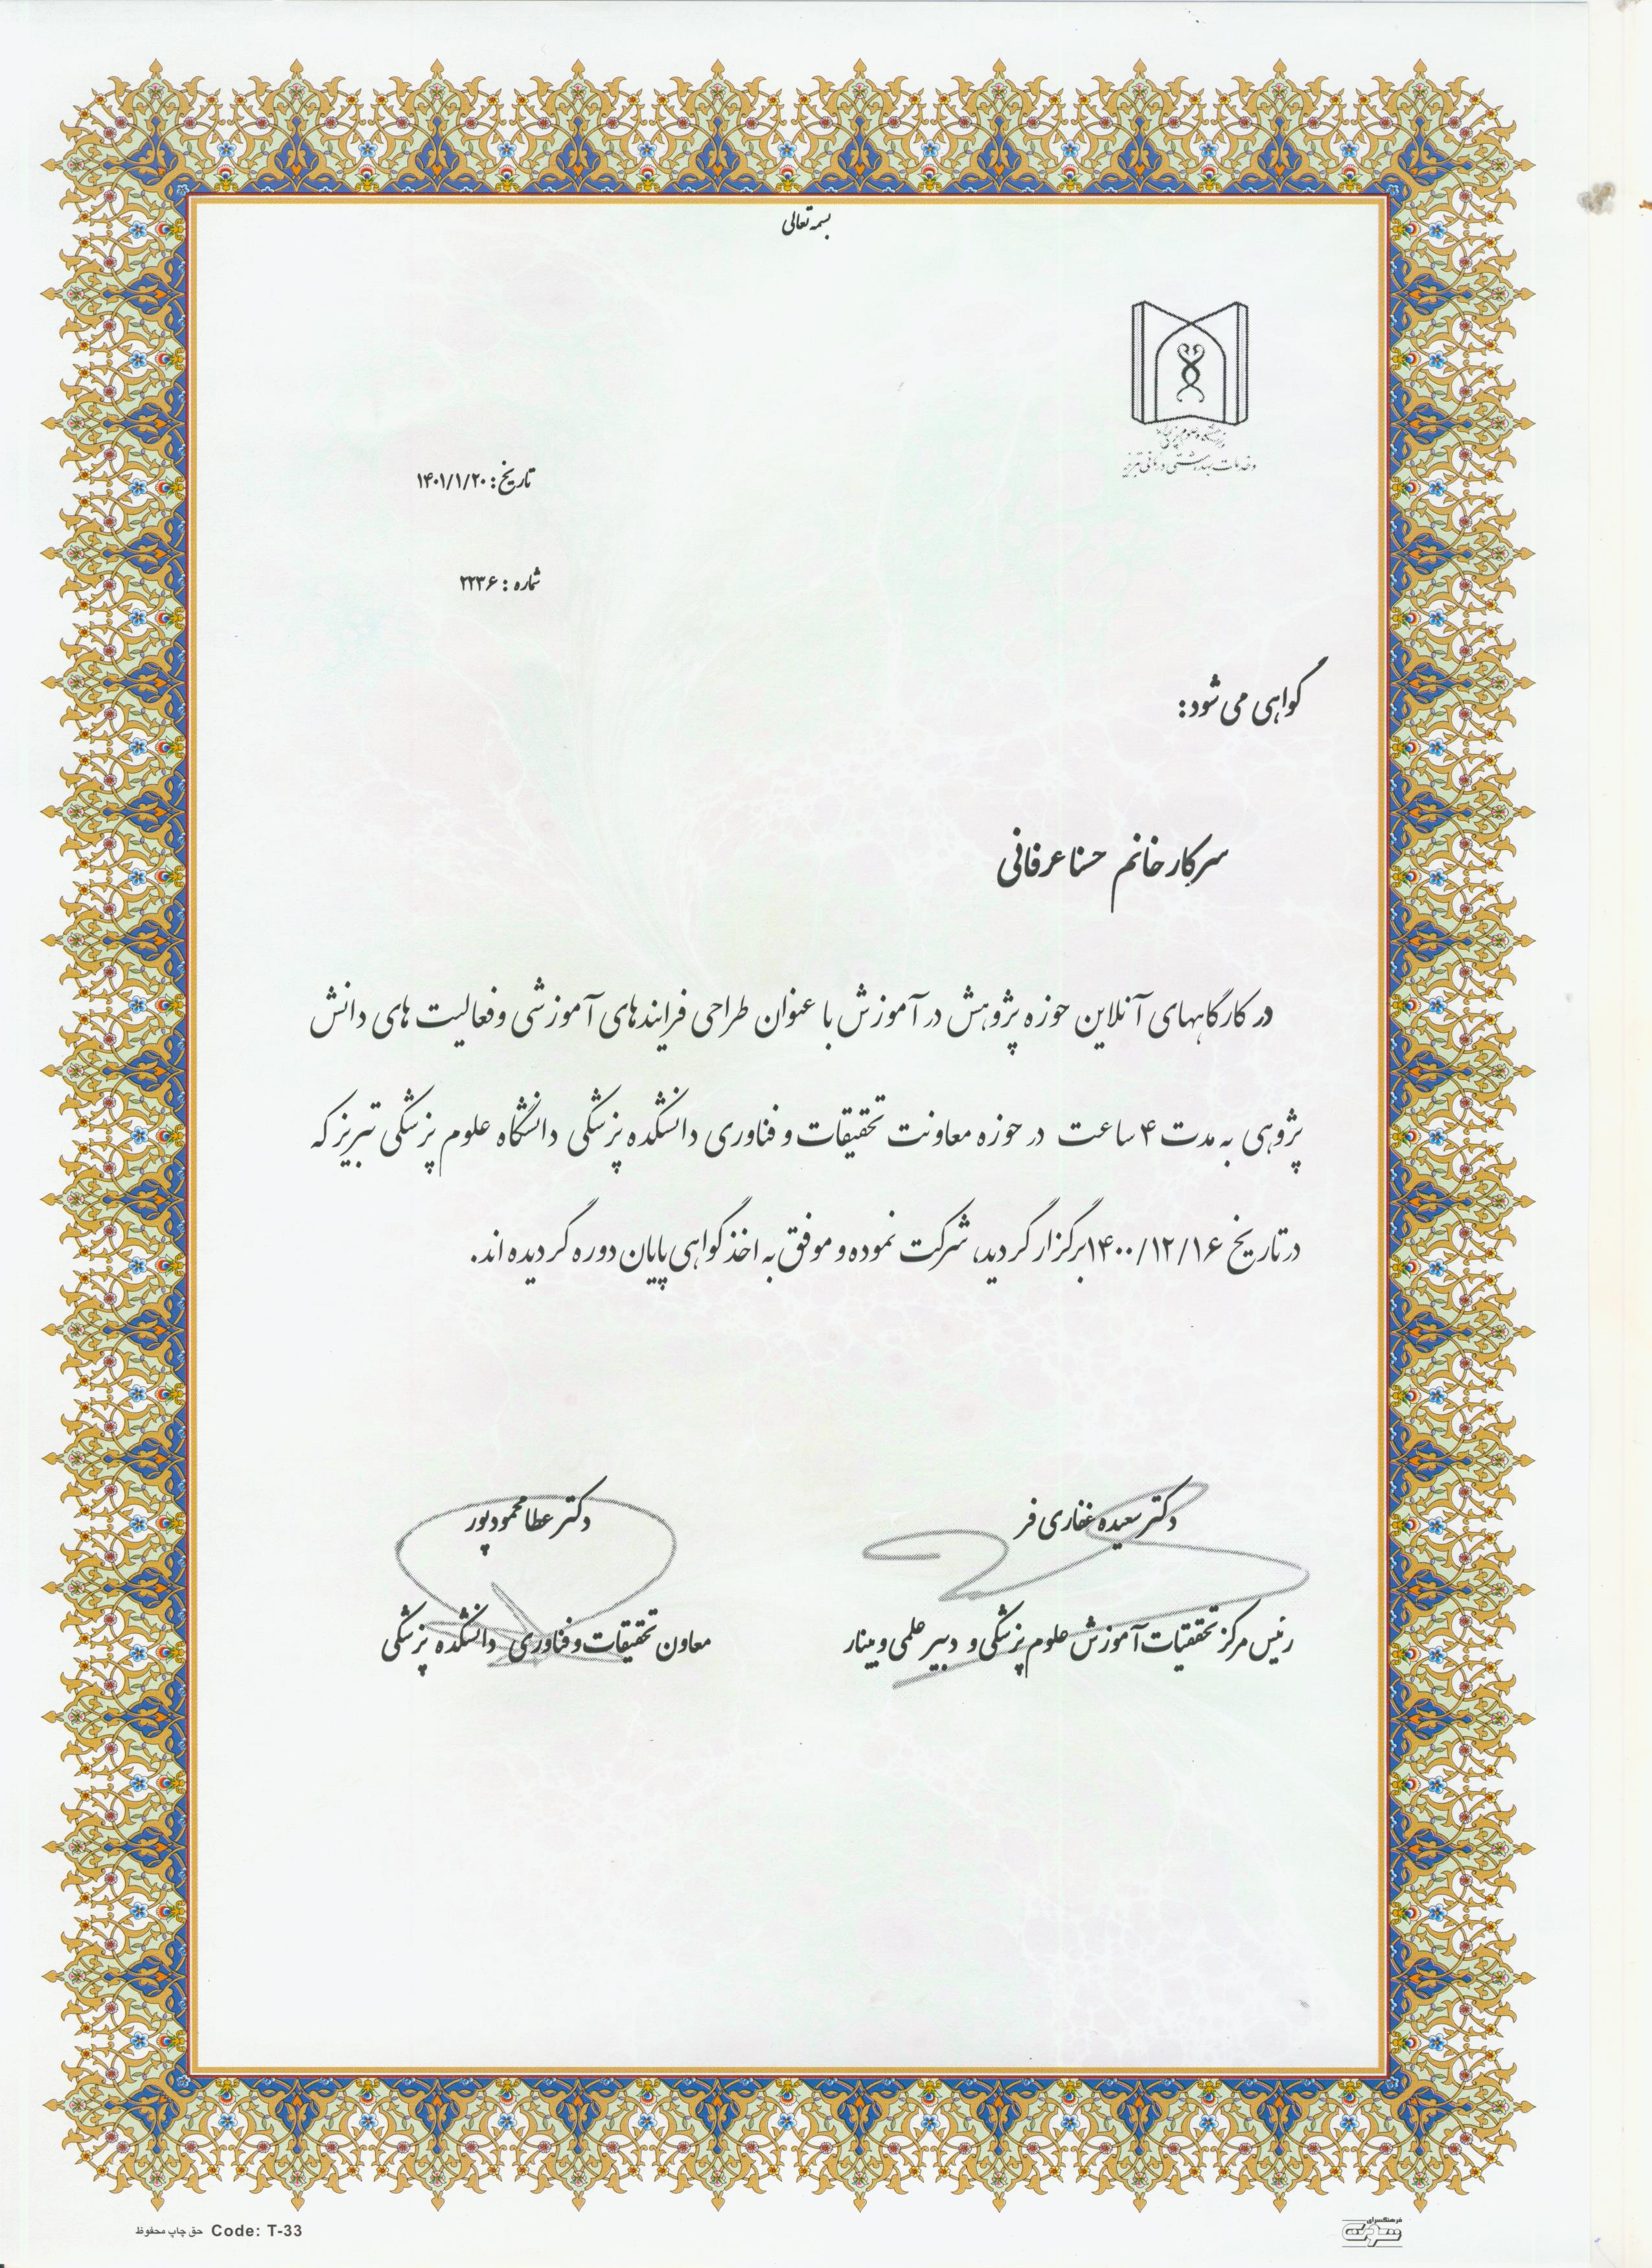 بسمه تعالی
دانشگاه علوم پزشکی
و خدمات بهداشتی درمانی تبریز
تاریخ: ۱۴۰۱/۱/۲۰
شماره: ۲۲۳۶
گواهی می شود:
سرکار خانم حسنا عرفانی
در کارگاههای آنلاین حوزه پژوهش در آموزش با عنوان طراحی فرایندهای آموزشی و فعالیت های دانش
پژوهی به مدت ۴ ساعت در حوزه معاونت تحقیقات و فناوری دانشکده پزشکی دانشگاه علوم پزشکی تبریز که
در تاریخ ۱۴۰۰/۱۲/۱۶ برگزار گردید، شرکت نموده و موفق به اخذ گواهی پایان دوره گردیده اند.
دکتر سعیده غفاری فر
دکتر عطا محمودپور
رئیس مرکز تحقیقات آموزش علوم پزشکی و دبیر علمی وبینار
معاون تحقیقات و فناوری دانشکده پزشکی
حق چاپ محفوظ Code: T-33
فرهنگسرای